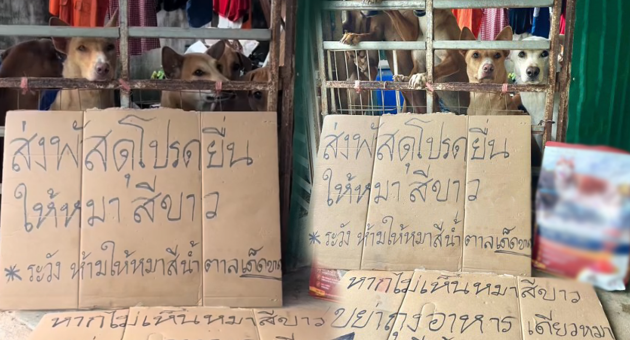 ส่งพัสดุโปรดยื่น
ให้หมาสีขาว
* ระวัง ห้ามให้หมาสีน้ำตาลเด็ดขาด
หากไม่เห็นหมาสีขาว
ส่งพัสดุโปรดยื่น
ให้หมา สีขาว
* ระวัง ห้ามให้หมาสีน้ำตาลเด็ดขาด
หากไม่เห็นหมาสีขาว
ขย่าถุงอาหาร เดี๋ยวหมา